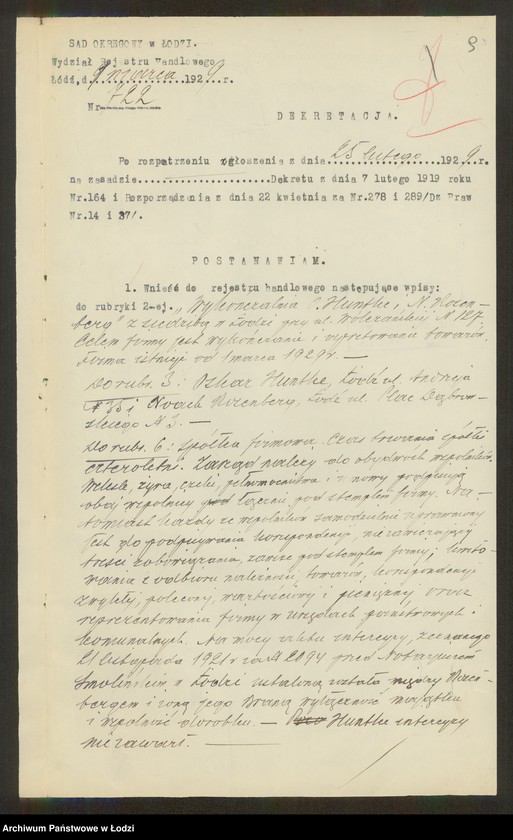 SĄD OKRĘGOWY w ŁODZI.
Wydział Rejestru Handlowego
Łódź, d. 9 marca 1929 r.
Nr. 722
9
DEKRETACJA.
Po rozpatrzeniu zgłoszenia z dnia 25 lutego 1929.r.
na zasadzie Dekretu z dnia 7 lutego 1919 roku
Nr.164 i Rozporządzenia z dnia 22 kwietnia za Nr.278 i 289/Dz Praw
Nr.14 i 37/.
POSTANAWIAM.
1. Wnieść do rejestru handlowego następujące wpisy:
do rubryki 2-ej. „Wykończalnia O. Huntke, N. Rozen-
berg" z siedzibą w Łodzi przy ul. Wólczańskiej N 127
Celem firmy jest wykończanie i apretowanie towarów.
Firma istnieje od 1 marca 1929 r. —
Do rubr. 3: Oskar Huntke, Łódź ul. Andrzeja
N 35 i Noach Rozenberg, Łódź ul. Plac Dąbrow-
skiego N 3. —
Do rubr. 6: Spółka firmowa. Czas trwania spółki
czteroletni. Zarząd należy do obydwóch wspólników.
Weksle, żyra, czeki, pełnomocnictwa i umowy podpisują
obaj wspólnicy łącznie pod stemplem firmy. Na-
tomiast każdy ze wspólników samodzielnie uprawniony
jest do podpisywania korespondencji, nie zawierającej
treści zobowiązania, zawsze pod stemplem firmy; kwito-
wania z odbioru należności, towarów, korespondencji
zwykłej, poleconej, wartościowej i pieniężnej oraz
reprezentowania firmy w urzędach państwowych i
komunalnych. Na mocy aktu intercyzy, zeznanego
21 listopada 1921 r za N 2094 przed Notarjuszem
Smolińskim w Łodzi ustalona została między Rozen-
bergiem i żoną jego wyłączność majątku
i wspólność dorobku. — Huntke intercyzy
nie zawarł. —
Archiwum Państwowe w Łodzi